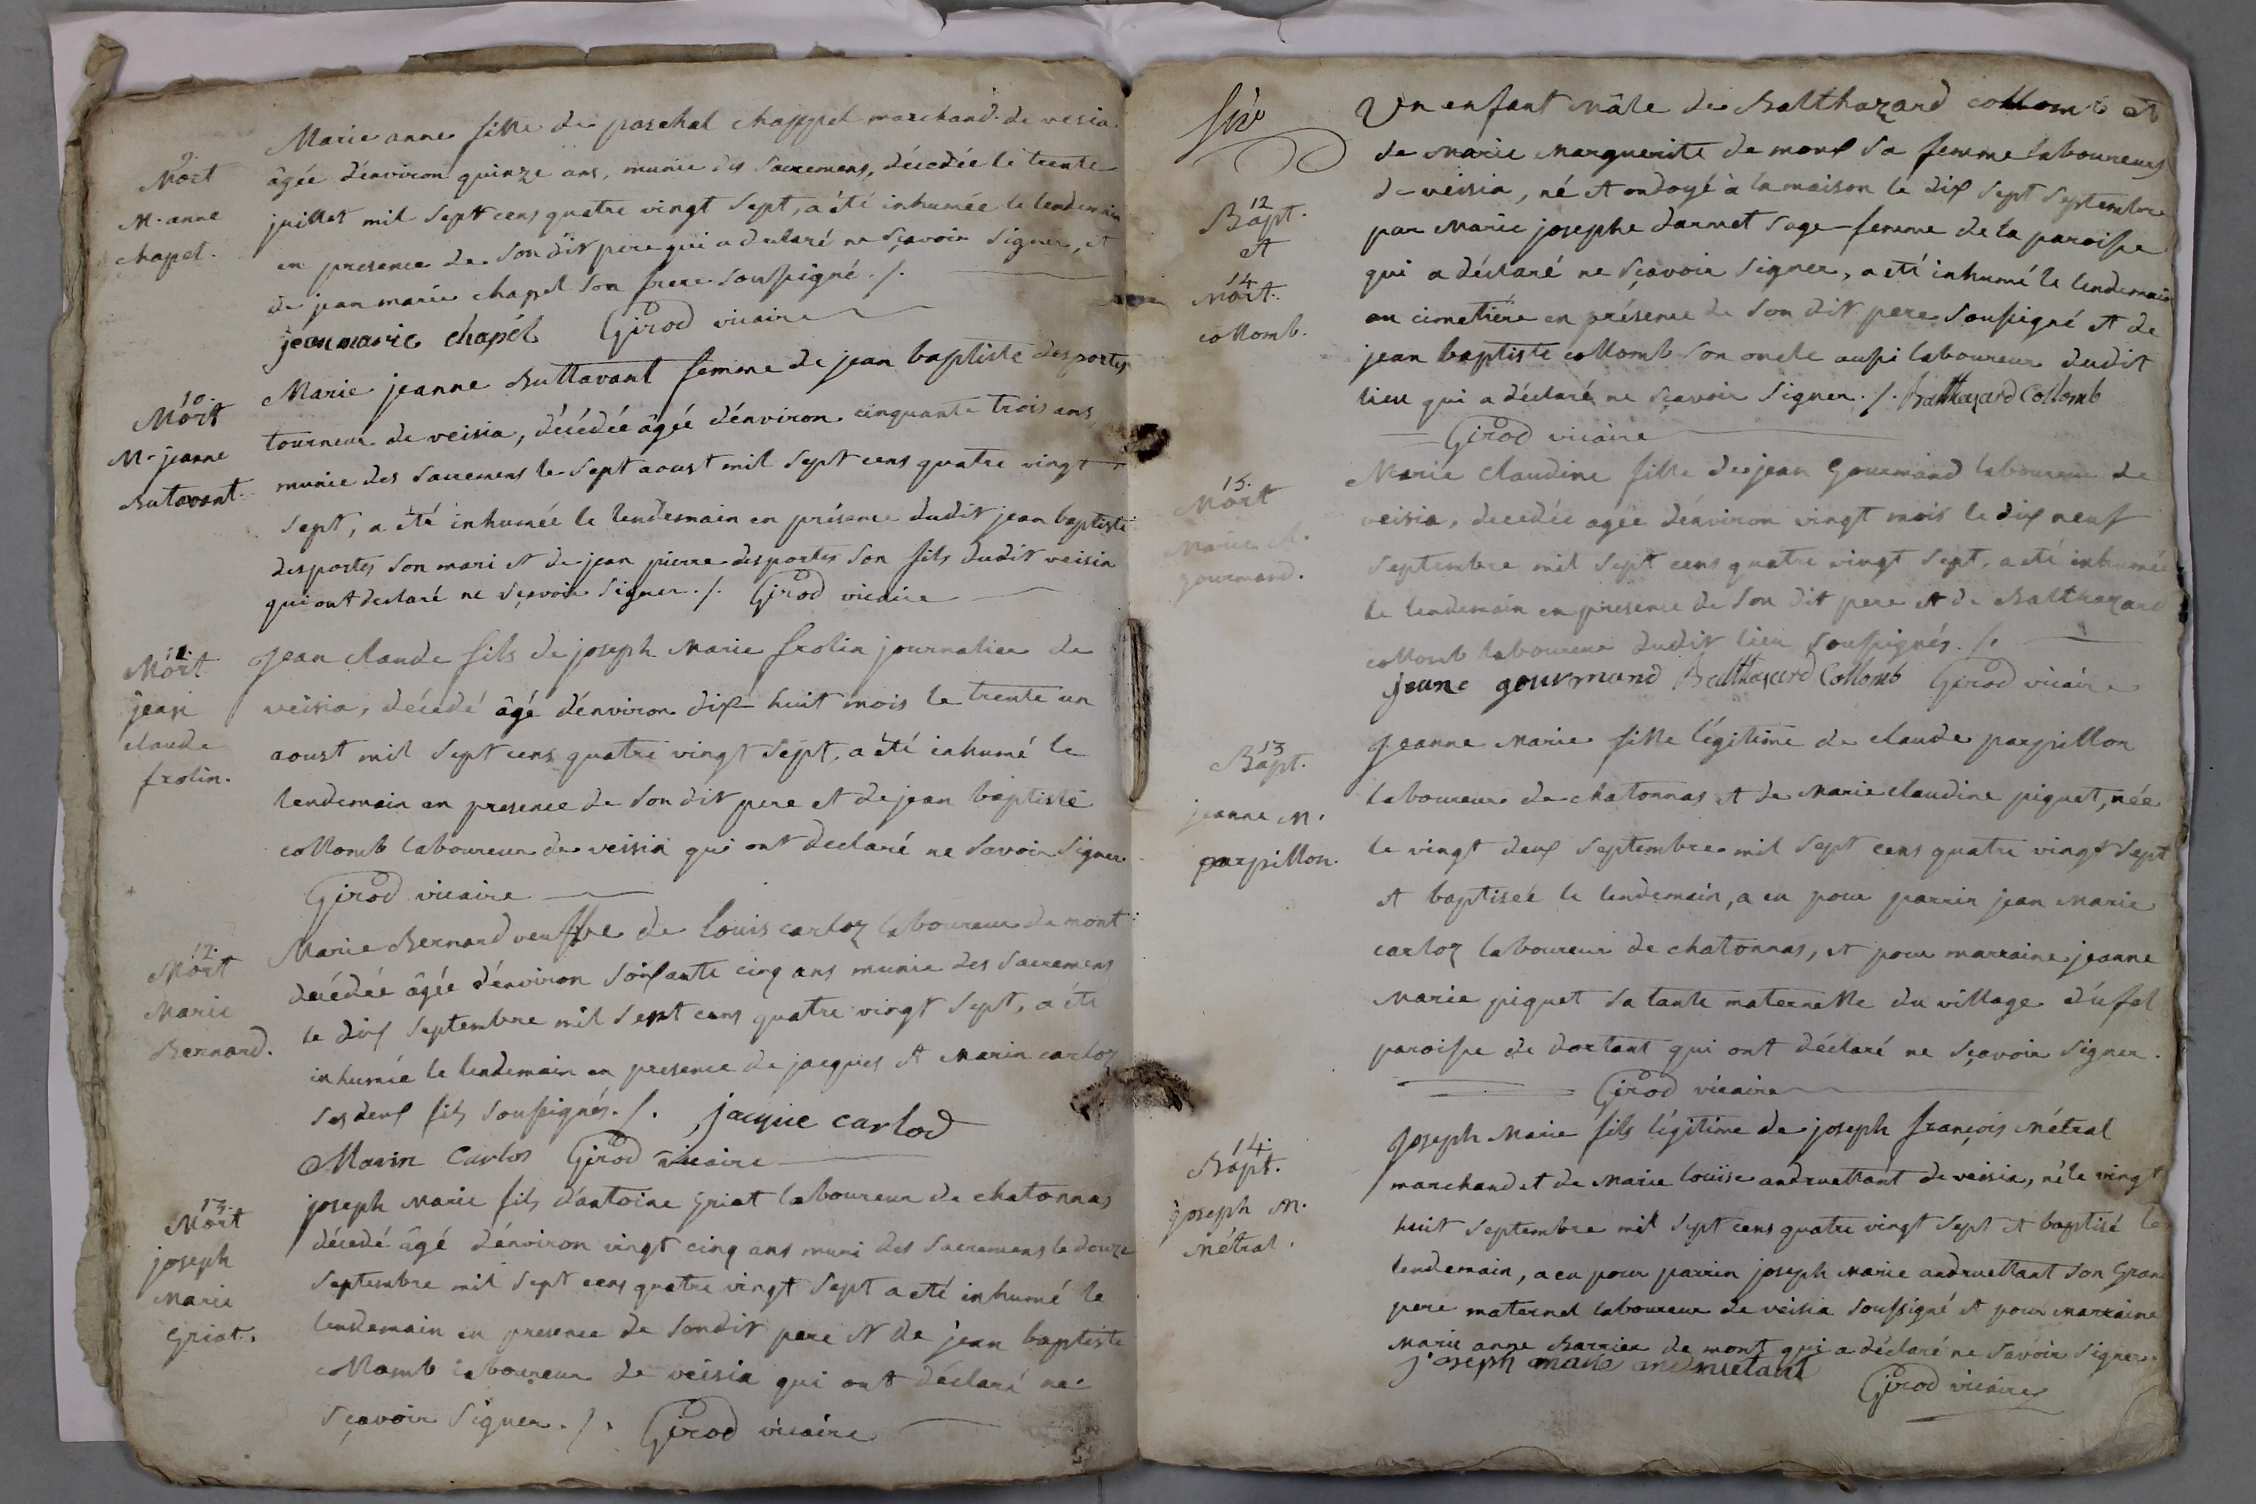 9.
Mort
M. anne
chapel.
Marie anne fille de paschal chappel marchand de vesia
âgée d'énviron quinze ans, munie des Sacremens, décédée le trente
juillet mil Sept cens quatre vingt Sept, a été inhumée le lendemain
en presence de Son dit pere qui a declaré ne Sçavoir Signer, et
de jean marie chapel Son frere Soussigné ./.
jean marie chapél Girod vicaire
10.
Mort
M. jeanne
Butavant.
Marie jeanne Buttavant femme de jean baptiste desportes
tourneur de veisia, décédée âgée d'énviron cinquante trois ans,
munie des Sacremens le Sept aoust mil Sept cens quatre vingt
Sept, a été inhumée le lendemain en présence dudit jean baptiste
desportes Son mari et de jean pierre desportes Son fils dudit veisia
qui ont declaré ne Sçavoir Signer ./. Girod vicaire
11.
Mort
jean
claude
frolin.
Jean claude fils de joseph Marie frolin journalier de
veisia, décédé âgé d'énviron dix huit mois le trente un
aoust mil Sept cens quatre vingt Sept, a été inhumé le
lendemain en presence de Son dit pere et de jean baptiste
collomb laboureur de veisia qui ont declaré ne Savoir Signer
Girod vicaire
12.
Mort
Marie
Bernard.
Marie Bernard veuffve de Louis carloz laboureur de mont
decédée âgée d'énviron Soixante cinq ans munie des Sacremens
le dix Septembre mil Sept cens quatre vingt Sept, a été
inhumée le lendemain en presence de jacques et Marin carloz
Ses deux fils Soussignés ./. jacque carlod
Marin Carlos Girod vicaire
13.
Mort
joseph
Marie
Griat.
joseph Marie fils d'antoine Griat laboureur de chatonnas
décedé âgé d'énviron vingt cinq ans muni des Sacremens le douze
Septembre mil Sept cens quatre vingt Sept a été inhumé le
lendemain en presence de Sondit pere et de jean baptiste
collomb laboureur de veisia qui ont déclaré ne
Sçavoir Signer ./. Girod vicaire
12
Bapt.
et
14
Mort.
collomb.
Un enfant mâle de Balthazard collomb et
de Marie Marguerite de mont Sa femme laboureurs
de veisia, né et ondoyé à la maison le dix Sept Septembre
par Marie josephe darnet Sage-femme de la paroisse
qui a déclaré ne Sçavoir Signer, a été inhumé le lendemain
au cimetière en présence de Son dit pere Soussigné et de
jean baptiste collomb Son oncle aussi laboureur dudit
lieu qui a déclaré ne Sçavoir Signer ./. Balthazard Collomb
Girod vicaire
15.
Mort
Marie cl.
gourmand.
Marie Claudine fille de jean Gourmand laboureur de
veisia, decedée agée d'énviron vingt mois le dix neuf
Septembre mil Sept cens quatre vingt Sept, a été inhumée
le lendemain en presence de Son dit pere et de Balthazard
collomb laboureur dudit lieu Soussignés ./.
jeanc gourmand Balthazard Collomb Girod vicaire
13
Bapt.
jeanne M.
parpillon.
Jeanne Marie fille légitime de claude parpillon
laboureur de chatonnas et de Marie claudine piquet, née
le vingt deux Septembre mil Sept cens quatre vingt Sept
et baptisée le lendemain, a eu pour parrin jean Marie
carloz laboureur de chatonnas, et pour marraine jeanne
Marie piquet Sa tante maternelle du village d'ufel
paroisse de dortant qui ont déclaré ne Sçavoir Signer.
Girod vicaire
14.
Bapt.
joseph M.
Métral.
Joseph Marie fils légitime de joseph françois Métral
marchand et de Marie Louise andruettant de veisia, né le vingt
huit Septembre mil Sept cens quatre vingt Sept et baptisé le
lendemain, a eu pour parrin joseph Marie andruettant Son Grand
pere maternel laboureur de veisia Soussigné et pour Marraine
Marie anne Barrier de mont qui a déclaré ne Savoir Signer.
joseph marie andruetant
Girod vicaire